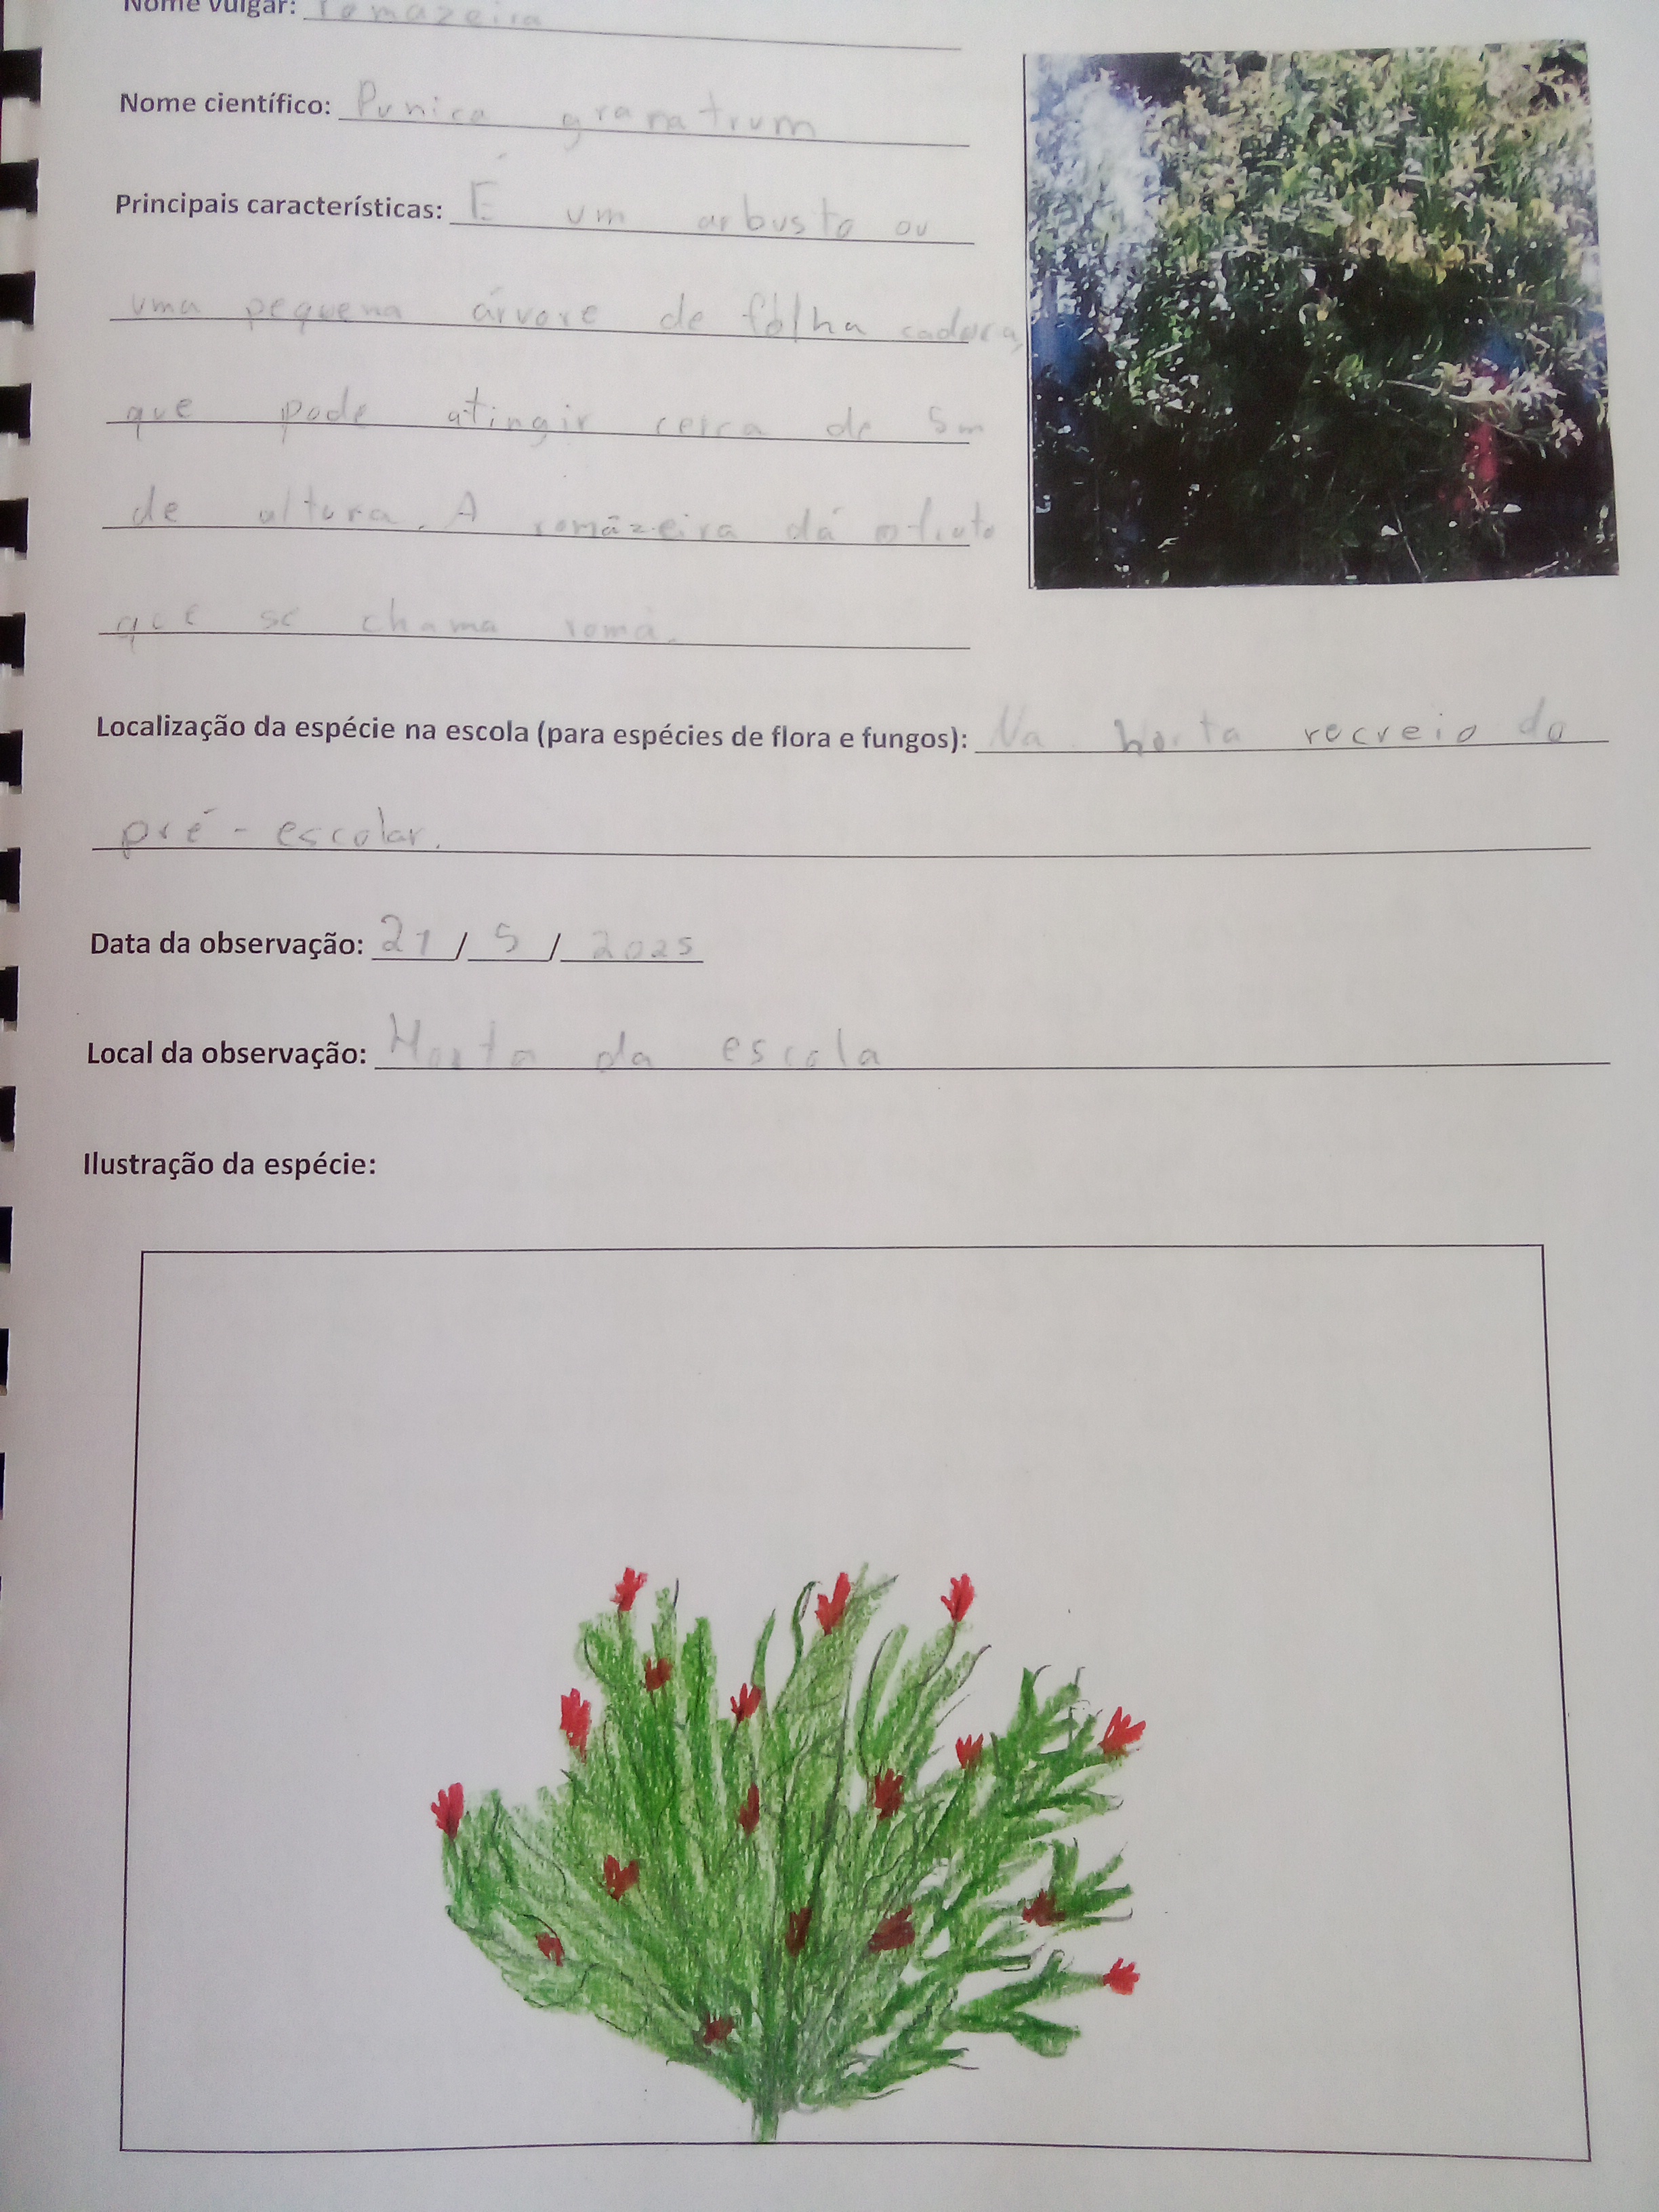 Nome vulgar: romazeira
Nome científico: Punica granatrum
Principais características: É um arbusto ou
uma pequena árvore de folha caduca,
que pode atingir cerca de 5m
de altura. A romãzeira dá o fruto
que se chama romã.
Localização da espécie na escola (para espécies de flora e fungos): Na horta recreio do
pré-escolar.
Data da observação: 21/5/2025
Local da observação: Horta da escola
Ilustração da espécie: